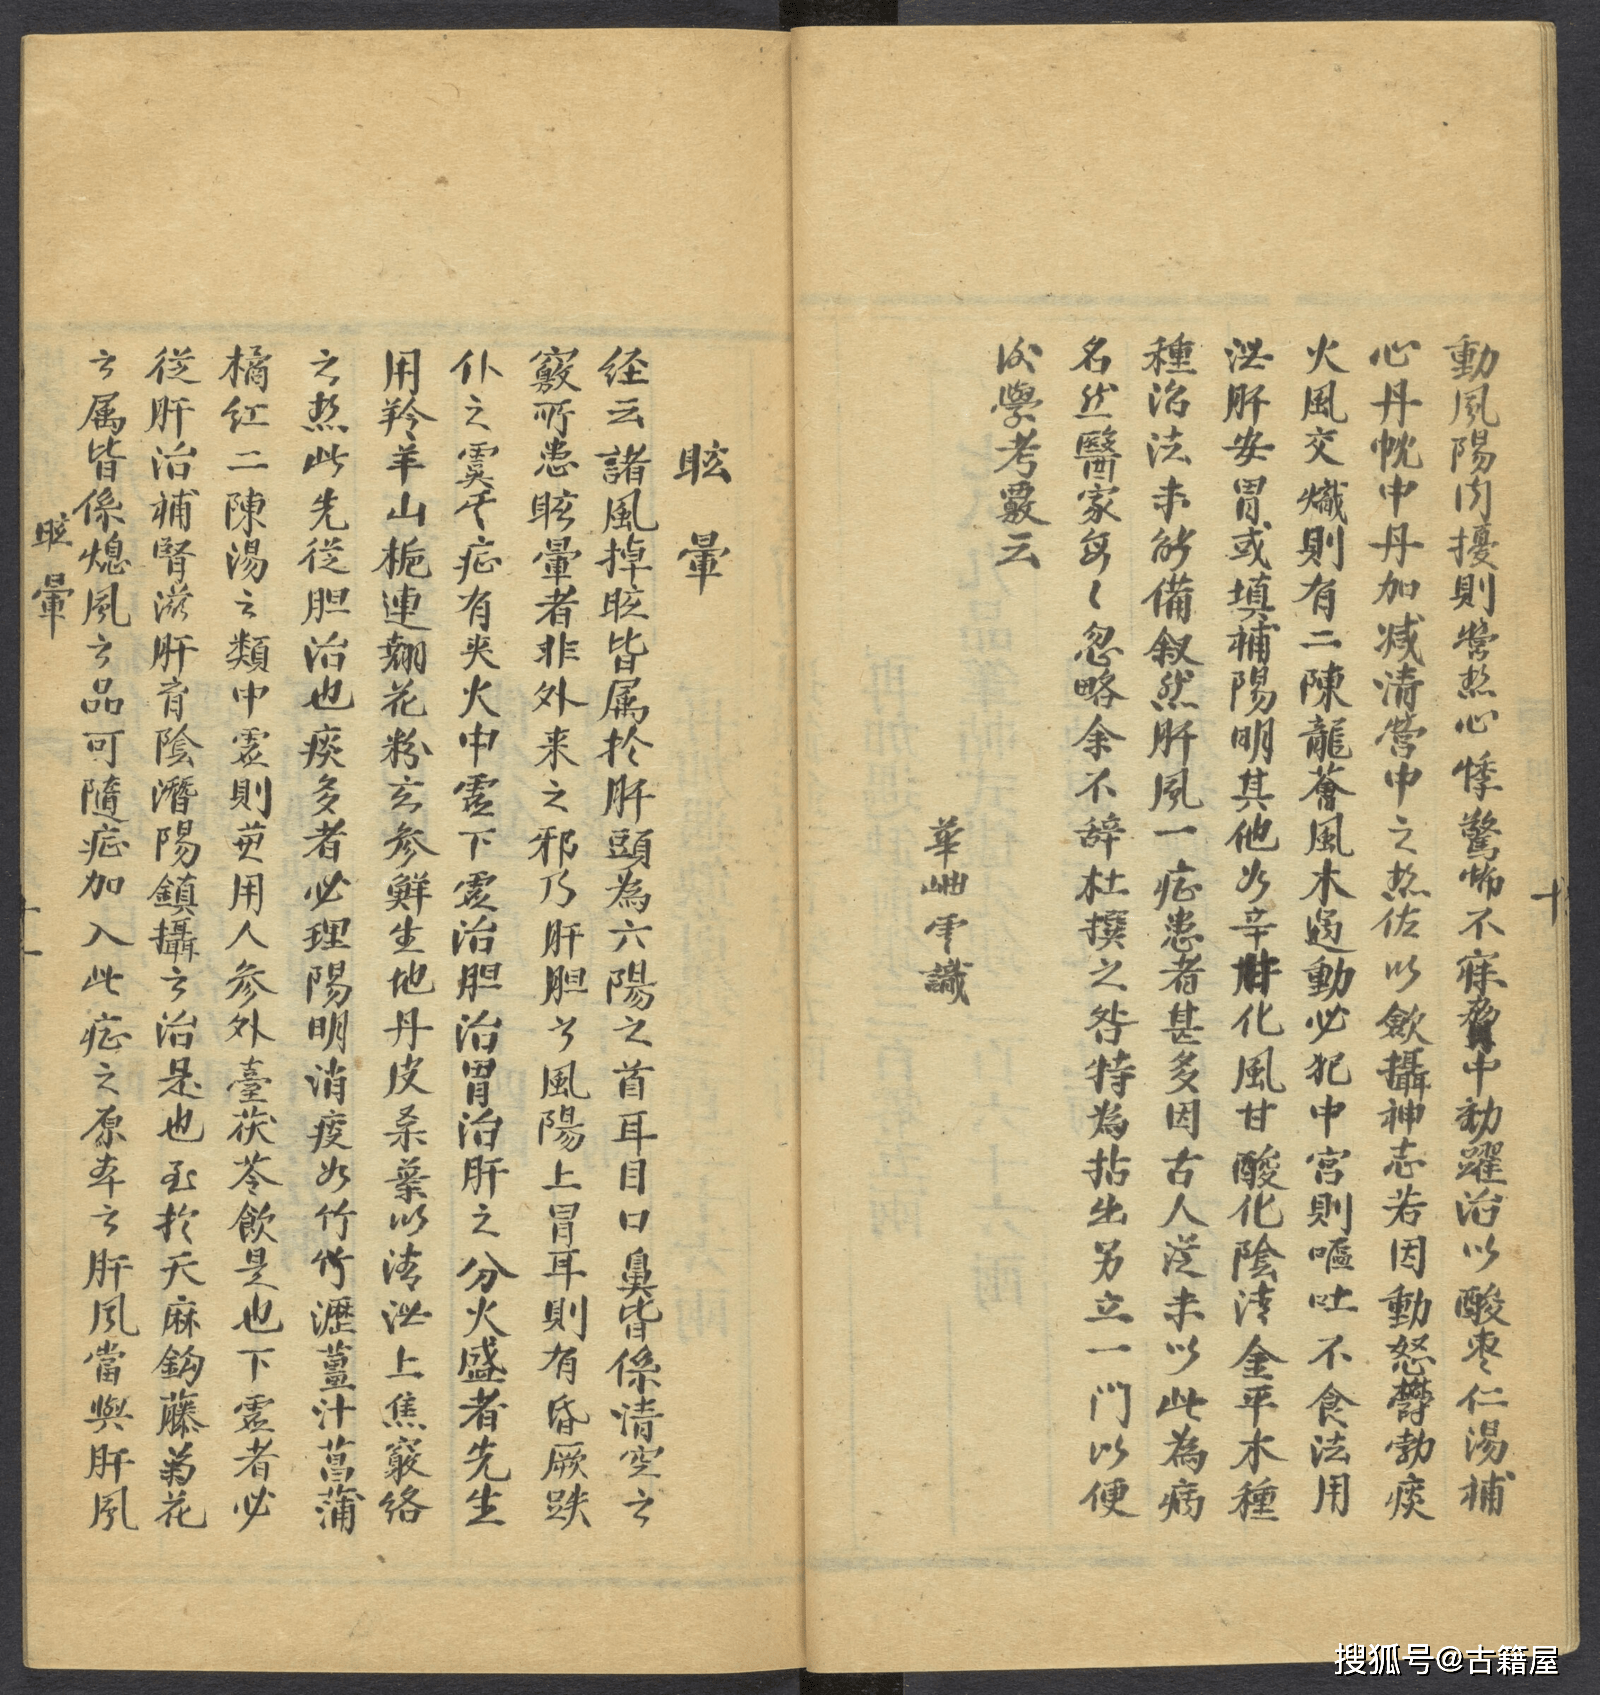 動風陽內擾則營热心悸驚怖不寐脅中動躍治以酸枣仁湯補
心丹忱中丹加减清營中之热佐以歛攝神志若因動怒欝勃痰
火風交熾則有二陳龍薈風木過動必犯中宮則嘔吐不食法用
泄肝安胃或填補陽明其他如辛甘化風甘酸化陰清金平木種
種治法未能備叙然肝風一症患者甚多因古人從未以此為病
名然醫家每〻忽略余不辞杜撰之咎特為拈出另立一門以便
後學考覈云
華岫雲識
十
眩暈
经云諸風掉眩皆属於肝頭為六陽之首耳目口鼻皆係清空之
竅所患眩暈者非外来之邪乃肝胆之風陽上冒耳則有昏厥跌
仆之虞其症有夾火中虛下虛治胆治胃治肝之分火盛者先生
用羚羊山栀連翹花粉玄参鮮生地丹皮桑葉以清泄上焦竅络
之热此先従胆治也痰多者必理陽明消痰如竹竹瀝薑汁菖蒲
橘红二陳湯之類中虛則兼用人参外臺茯苓飲是也下虛者必
従肝治補腎滋肝育陰潛陽鎮攝之治是也至於天麻鈎藤菊花
之属皆係熄風之品可隨症加入此症之原本之肝風當與肝風
眩暈
十一